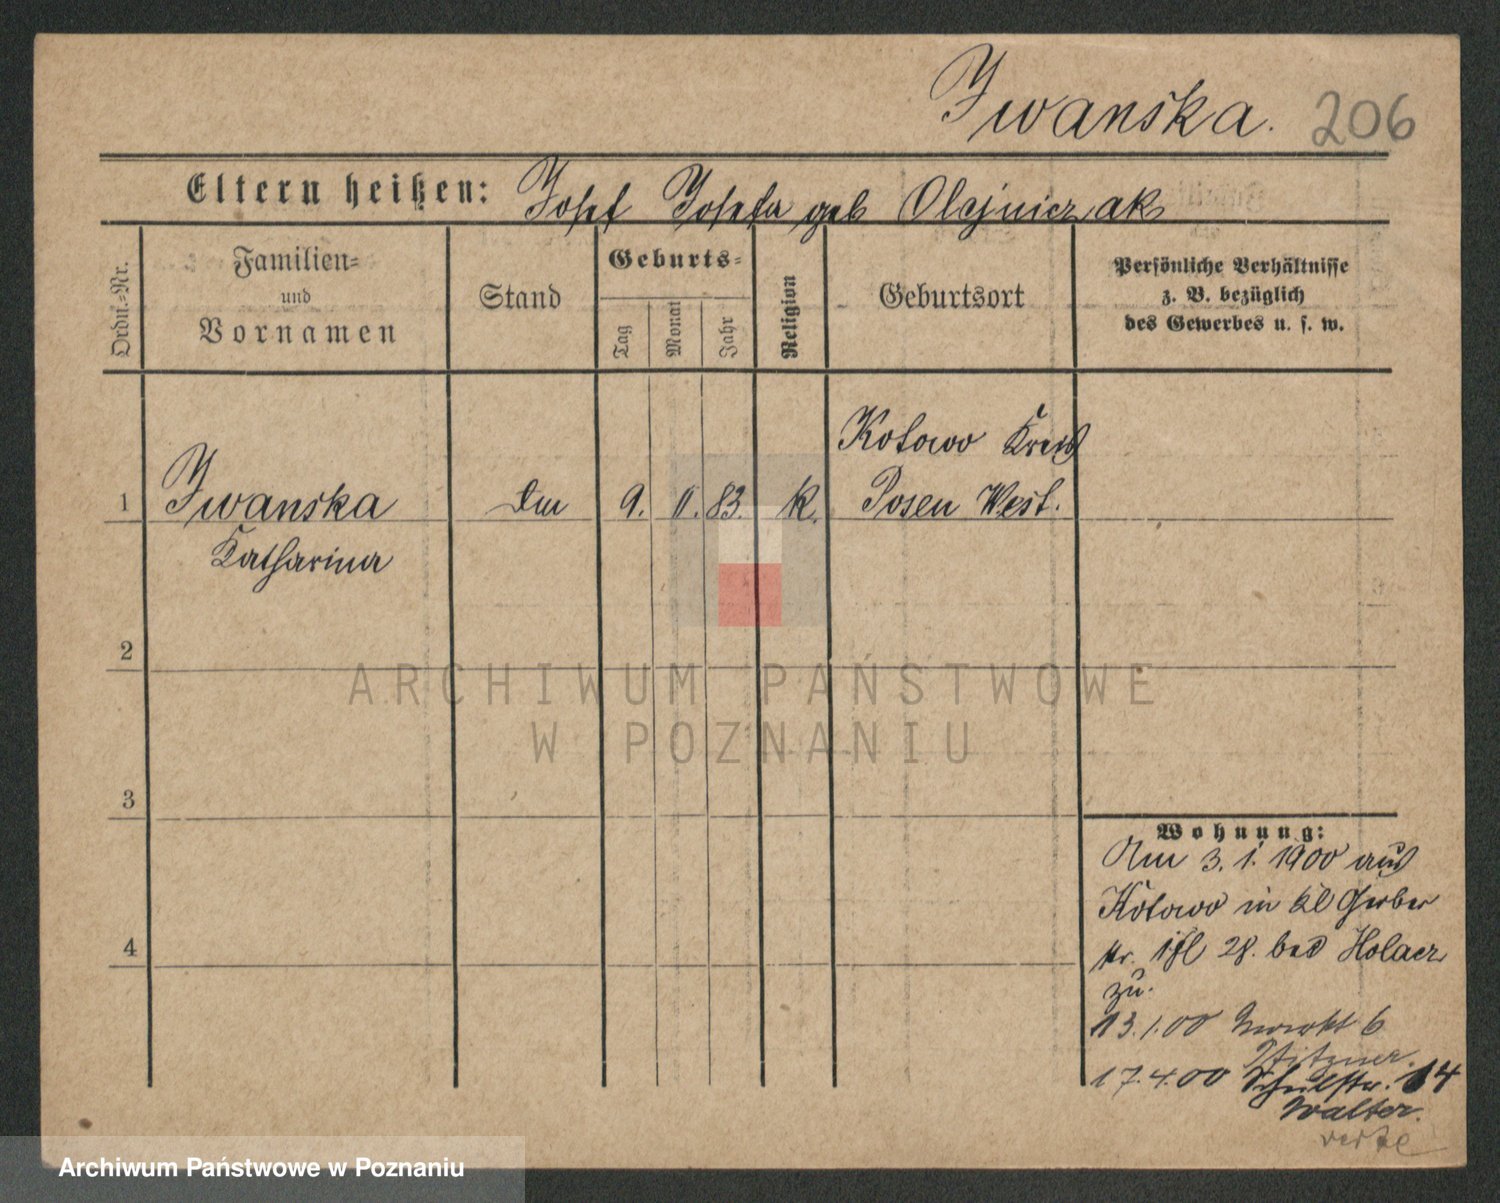 Iwanska.
206
Eltern heißen: Josef Josefa geb Olejniczak
Ordn.-Nr.
Familien-
und
Vornamen
Stand
Geburts-
Tag
Monat
Jahr
Religion
Geburtsort
Persönliche Verhältnisse
z. B. bezüglich
des Gewerbes u. s. w.
Kotowo Kreis
1 Iwanska 9. 11. 83. K. Posen West.
Katharina
2
ARCHIWUM PAŃSTWOWE
W POZNANIU
3
Wohnung:
Am 3. 1. 1900 aus
Kotowo in kl Gerber
str. 28. bei
zu.
4
13.1.00 6
17.4.00 Schulstr. 14
Walter.
Archiwum Państwowe w Poznaniu